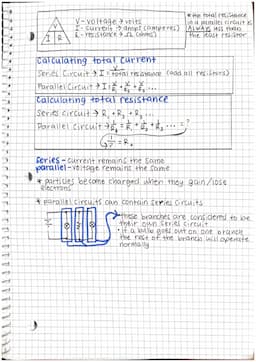 V
I R
V - voltage → volts
I - current → amps (amperes)
R - resistance → Ω (ohms)
* the total resistance
in a parallel circuit is
ALWAYS less than
the least resistor
Calculating total current
Series Circuit → I = V / total resistance (add all resistors)
Parallel Circuit → I = V/R₁ + V/R₂ + V/R₃ ...
Calculating total resistance
Series circuit → R₁ + R₂ + R₃ ...
Parallel circuit → 1/R₁ + 1/R₂ + 1/R₃ ... = ?
= Rₜ
series - current remains the same
parallel - voltage remains the same
* particles become charged when they gain/lose
electrons
* parallel circuits can contain series circuits
→ these branches are considered to be
their own series circuit
• if a bulb goes out on one branch
the rest of the branch will operate
normally